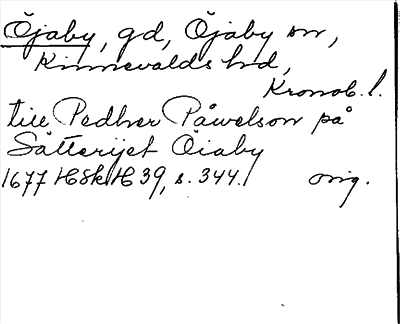 Öjaby, gd, Öjaby sn,
Kinnevalds hd,
Kronob. l.
till Pedher Påwelson på
Sätterijet Öiaby
1677 HSkH 39, s. 344. orig.